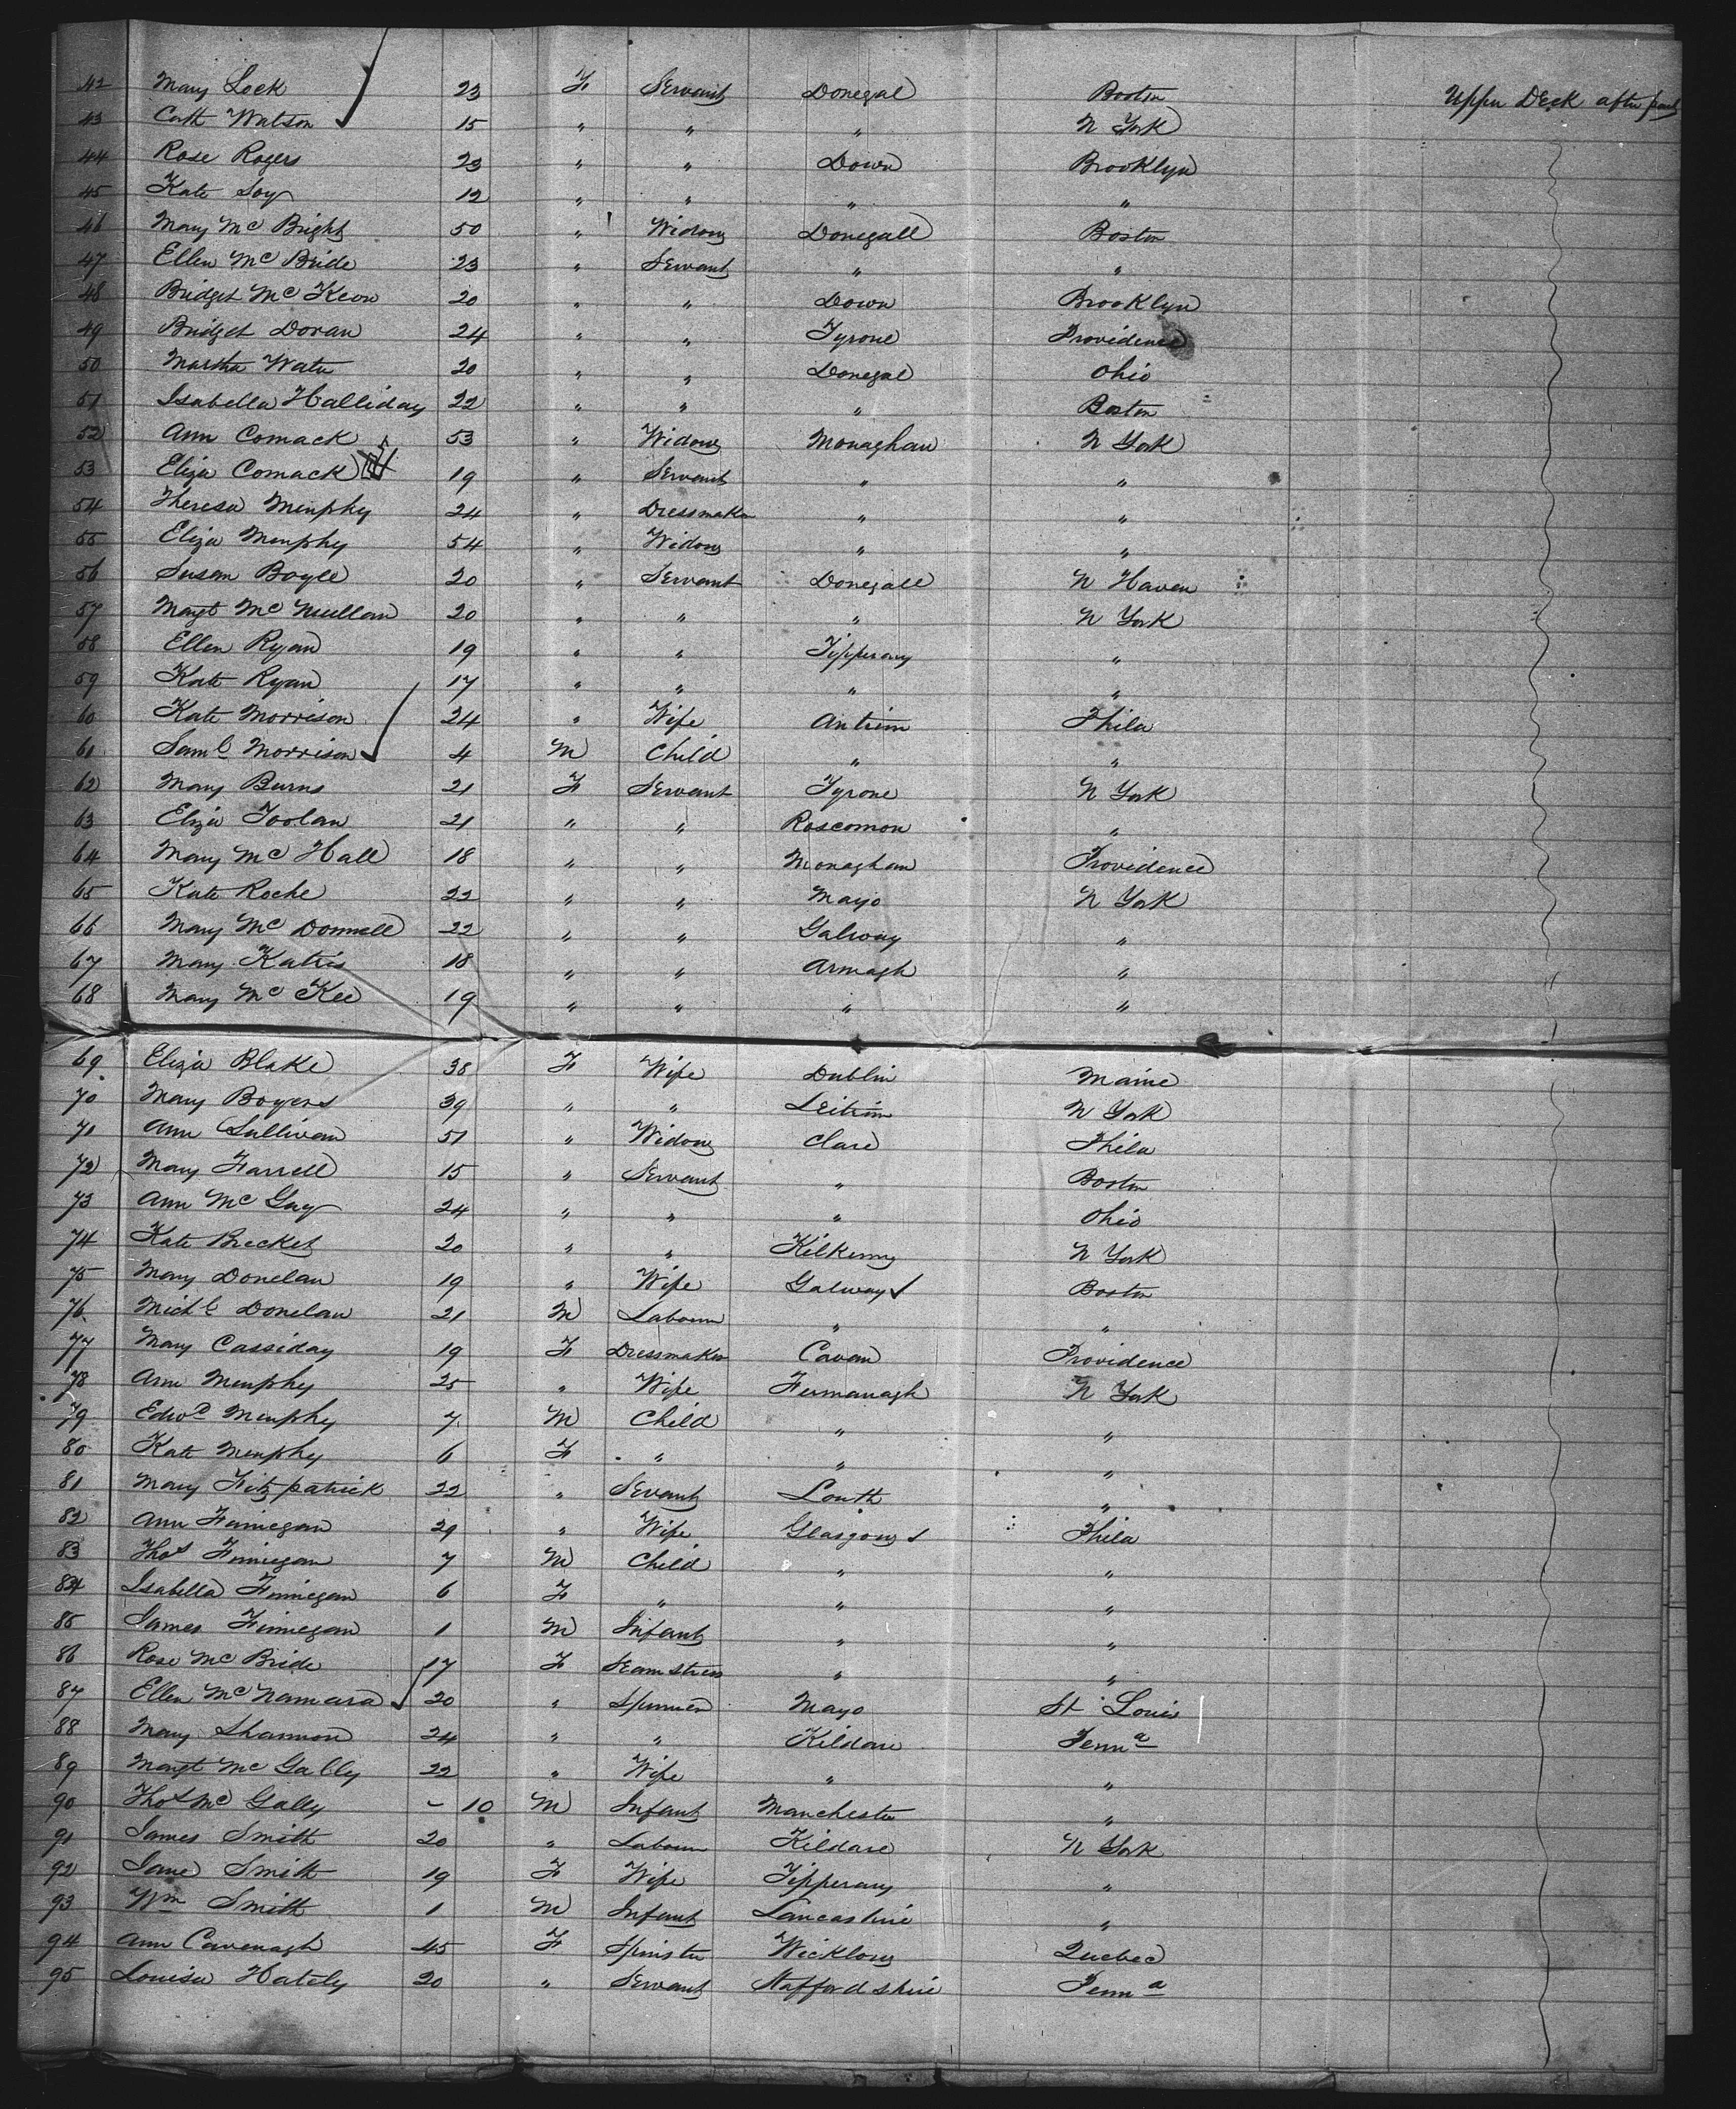 42 Mary Lock 23 F Servant Donegal Boston Upper Deck after part
43 Cath Watson 15 " " " N York
44 Rose Rogers 23 " " Down Brooklyn
45 Kate Loy 12 " " " "
46 Mary Mc Bright 50 " Widow Donegall Boston
47 Ellen Mc Bride 23 " Servant " "
48 Bridget Mc Keon 20 " " Down Brooklyn
49 Bridget Doran 24 " " Tyrone Providence
50 Martha Water 20 " " Donegal Ohio
51 Isabella Halliday 22 " " " Boston
52 Ann Comack 53 " Widow Monaghan N York
53 Eliza Comack 19 " Servant " "
54 Theresa Murphy 24 " Dressmaker " "
55 Eliza Murphy 54 " Widow " "
56 Susan Boyle 20 " Servant Donegall N Haven
57 Margt Mc Mullan 20 " " " N York
58 Ellen Ryan 19 " " Tipperary "
59 Kate Ryan 17 " " " "
60 Kate Morrison 24 " Wife Antrim Phila
61 Saml Morrison 4 M Child " "
62 Mary Burns 21 F Servant Tyrone N York
63 Eliza Toolan 21 " " Roscomon "
64 Mary Mc Hall 18 " " Monaghan Providence
65 Kate Roche 22 " " Mayo N York
66 Mary Mc Donnell 22 " " Galway "
67 Mary Katris 18 " " Armagh "
68 Mary Mc Kee 19 " " " "
69 Eliza Blake 38 F Wife Dublin Maine
70 Mary Boyers 39 " " Leitrim N York
71 Ann Sullivan 51 " Widow Clare Phila
72 Mary Farrell 15 " Servant " Boston
73 Ann Mc Gay 24 " " " Ohio
74 Kate Becket 20 " " Kilkenny N York
75 Mary Donelan 19 " Wife Galway Boston
76 Michl Donelan 21 M Labourer " "
77 Mary Cassiday 19 F Dressmaker Cavan Providence
78 Ann Murphy 25 " Wife Fermanagh N York
79 Edwd Murphy 7 M Child " "
80 Kate Murphy 6 F " " "
81 Mary Fitzpatrick 22 " Sevant Louth "
82 Ann Finnegan 29 " Wife Glasgow Phila
83 Thos Finnegan 7 M Child " "
84 Isabella Finnegan 6 F " " "
85 James Finnegan 1 M Infant " "
86 Rose Mc Bride 17 F Seamstress " "
87 Ellen Mc Namara 20 " Spinner Mayo St Louis
88 Mary Shannon 24 " " Kildare Penna
89 Margt Mc Gally 22 " Wife " "
90 Thos Mc Gally - 10 M Infant Manchester "
91 James Smith 20 " Labourer Kildare N York
92 Jane Smith 19 F Wife Tipperary "
93 Wm Smith 1 M Infant Lancashire "
94 Ann Cavenagh 45 F Spinster Wicklow Quebec
95 Louisa Hately 20 " Servant Staffordshire Penna